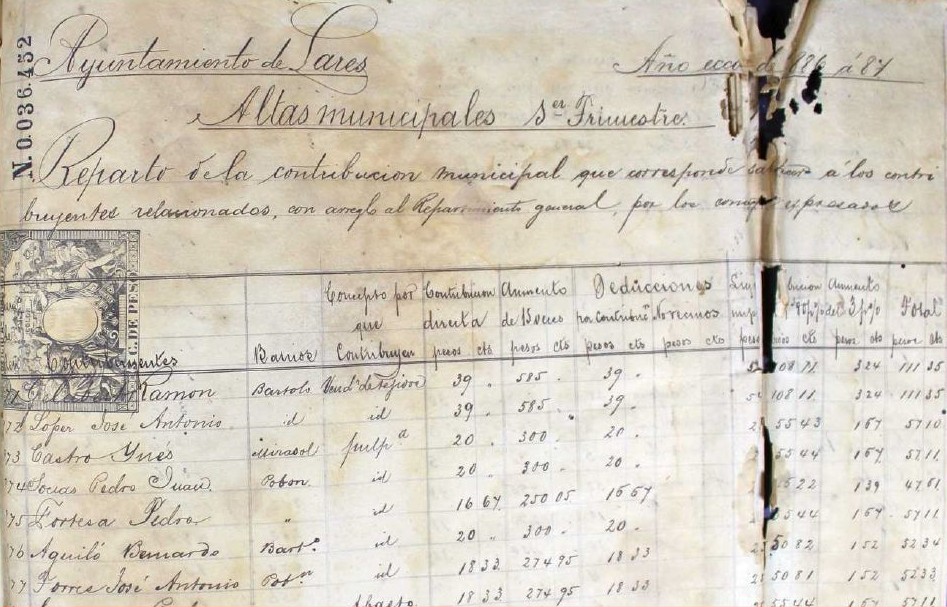 N.0.036.452
Ayuntamiento de Lares
Año eco de 886 á 87
Altas municipales 3er Trimestre.
Reparto de la contribucion municipal que corresponde á los contri
buyentes relacionados, con arreglo al general, por los expresados
Contribuyentes Barrios Concepto por que Contribuyen Contribucion directa pesos cts Aumento de 15 veces pesos cts Deducciones por contribn pesos cts No vecinos pesos cts pesos cts Aumento del 3 p% pesos cts Total pesos cts
C. DE PESO
Ramon Bartolo Vendn de tejidos 39 " 585 - 39 - 108 11 3 24 111 35
72 Lopez José Antonio id id 39 " 585 " 39 - 108 11 3 24 111 35
73 Castro Ynés Mirasol pulpa 20 " 300 - 20 - 55 43 1 67 57 10
74 Socias Pedro Juan. Pobon. id 20 - 300 - 20 - 55 44 1 67 57 11
75 Fortesa Pedro " id 16 67 250 05 16 67 22 1 39 47 61
76 Aguiló Bernardo Barto id 20 " 300 - 20 - 55 44 1 67 57 11
77 Torres José Antonio Pobn id 18 33 274 95 18 33 50 82 1 52 52 34
abasto 18 33 274 95 18 33 50 81 1 52 52 33
55 44 1 67 57 11